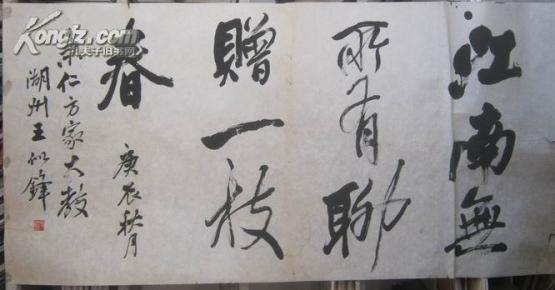 江南無
所有聊
贈一枝
春
庚辰秋月
仁方家大教
湖州王似鋒
Kongfz.com
孔夫子旧书网